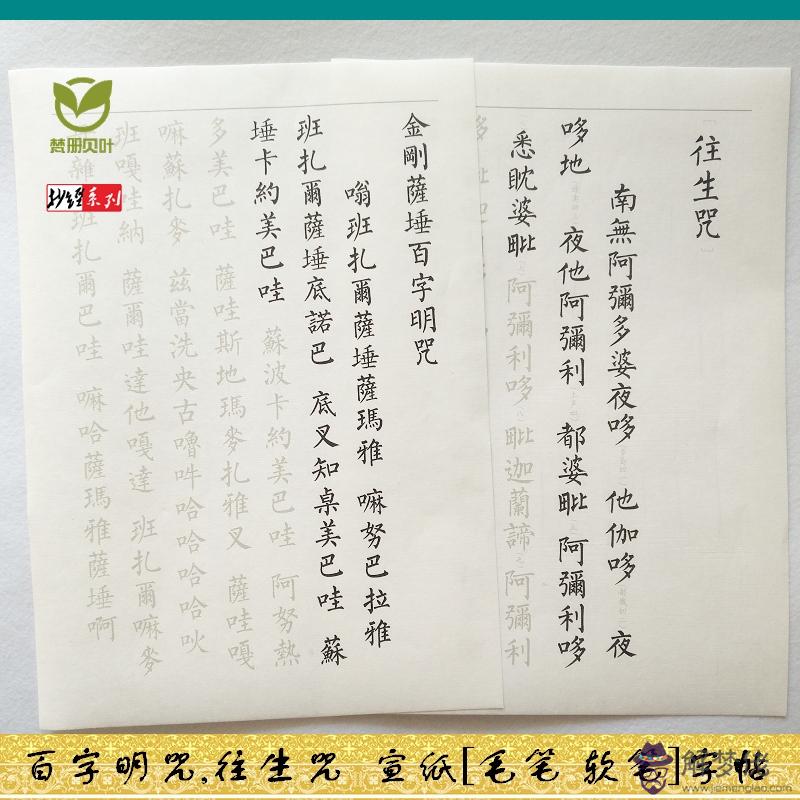 往生咒
南無阿彌多婆夜哆 他伽哆 夜
哆地 夜他阿彌利 都婆毗 阿彌利哆
悉眈婆毗 阿彌利哆 毗迦蘭諦 阿彌利
金剛薩埵百字明咒
嗡班扎爾薩埵薩瑪雅 嘛努巴拉雅
班扎爾薩埵底諾巴 底叉知桌美巴哇 蘇
埵卡約美巴哇 蘇波卡約美巴哇 阿努熱
多美巴哇 薩哇斯地瑪麥扎雅叉 薩哇嘎
嘛蘇扎麥 茲當洗央古嚕吽哈哈哈哈伙
班嘎哇納 薩爾哇達他嘎達 班扎爾嘛麥
雜班扎爾巴哇 嘛哈薩瑪雅薩埵啊
梵册贝叶
抄经系列
百字明咒.往生咒 宣纸[毛笔 软笔]字帖
解梦佬
jiemenglao.com